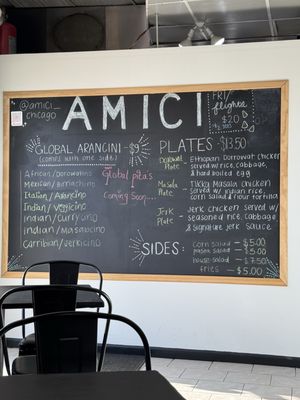 AMICI
@amici_
chicago
AMICI
FRI
flights
$20
GLOBAL ARANCINI - $9
(comes with one side)
African/dorowatino
Mexican/
Italian/Arancino
Indian/
Indian/Currycino
Indian/Masalacino
Carribian/verkicino
Global pita's
Coming Soon...
PLATES - $13.50
Dorowat
Plate
Ethiopian Dorowat chicken
served w/ rice, cabbage,
& hard boiled egg
Masala
Plate
Tikka Masala chicken
served w/ indian rice,
corn salad & flour tortilla
Jerk
Plate
Jerk chicken served w/
seasoned rice, cabbage
& signature jerk sauce
SIDES:
corn salad - $5.00
pasta salad - $5.00
house salad - $7.50
fries - $5.00